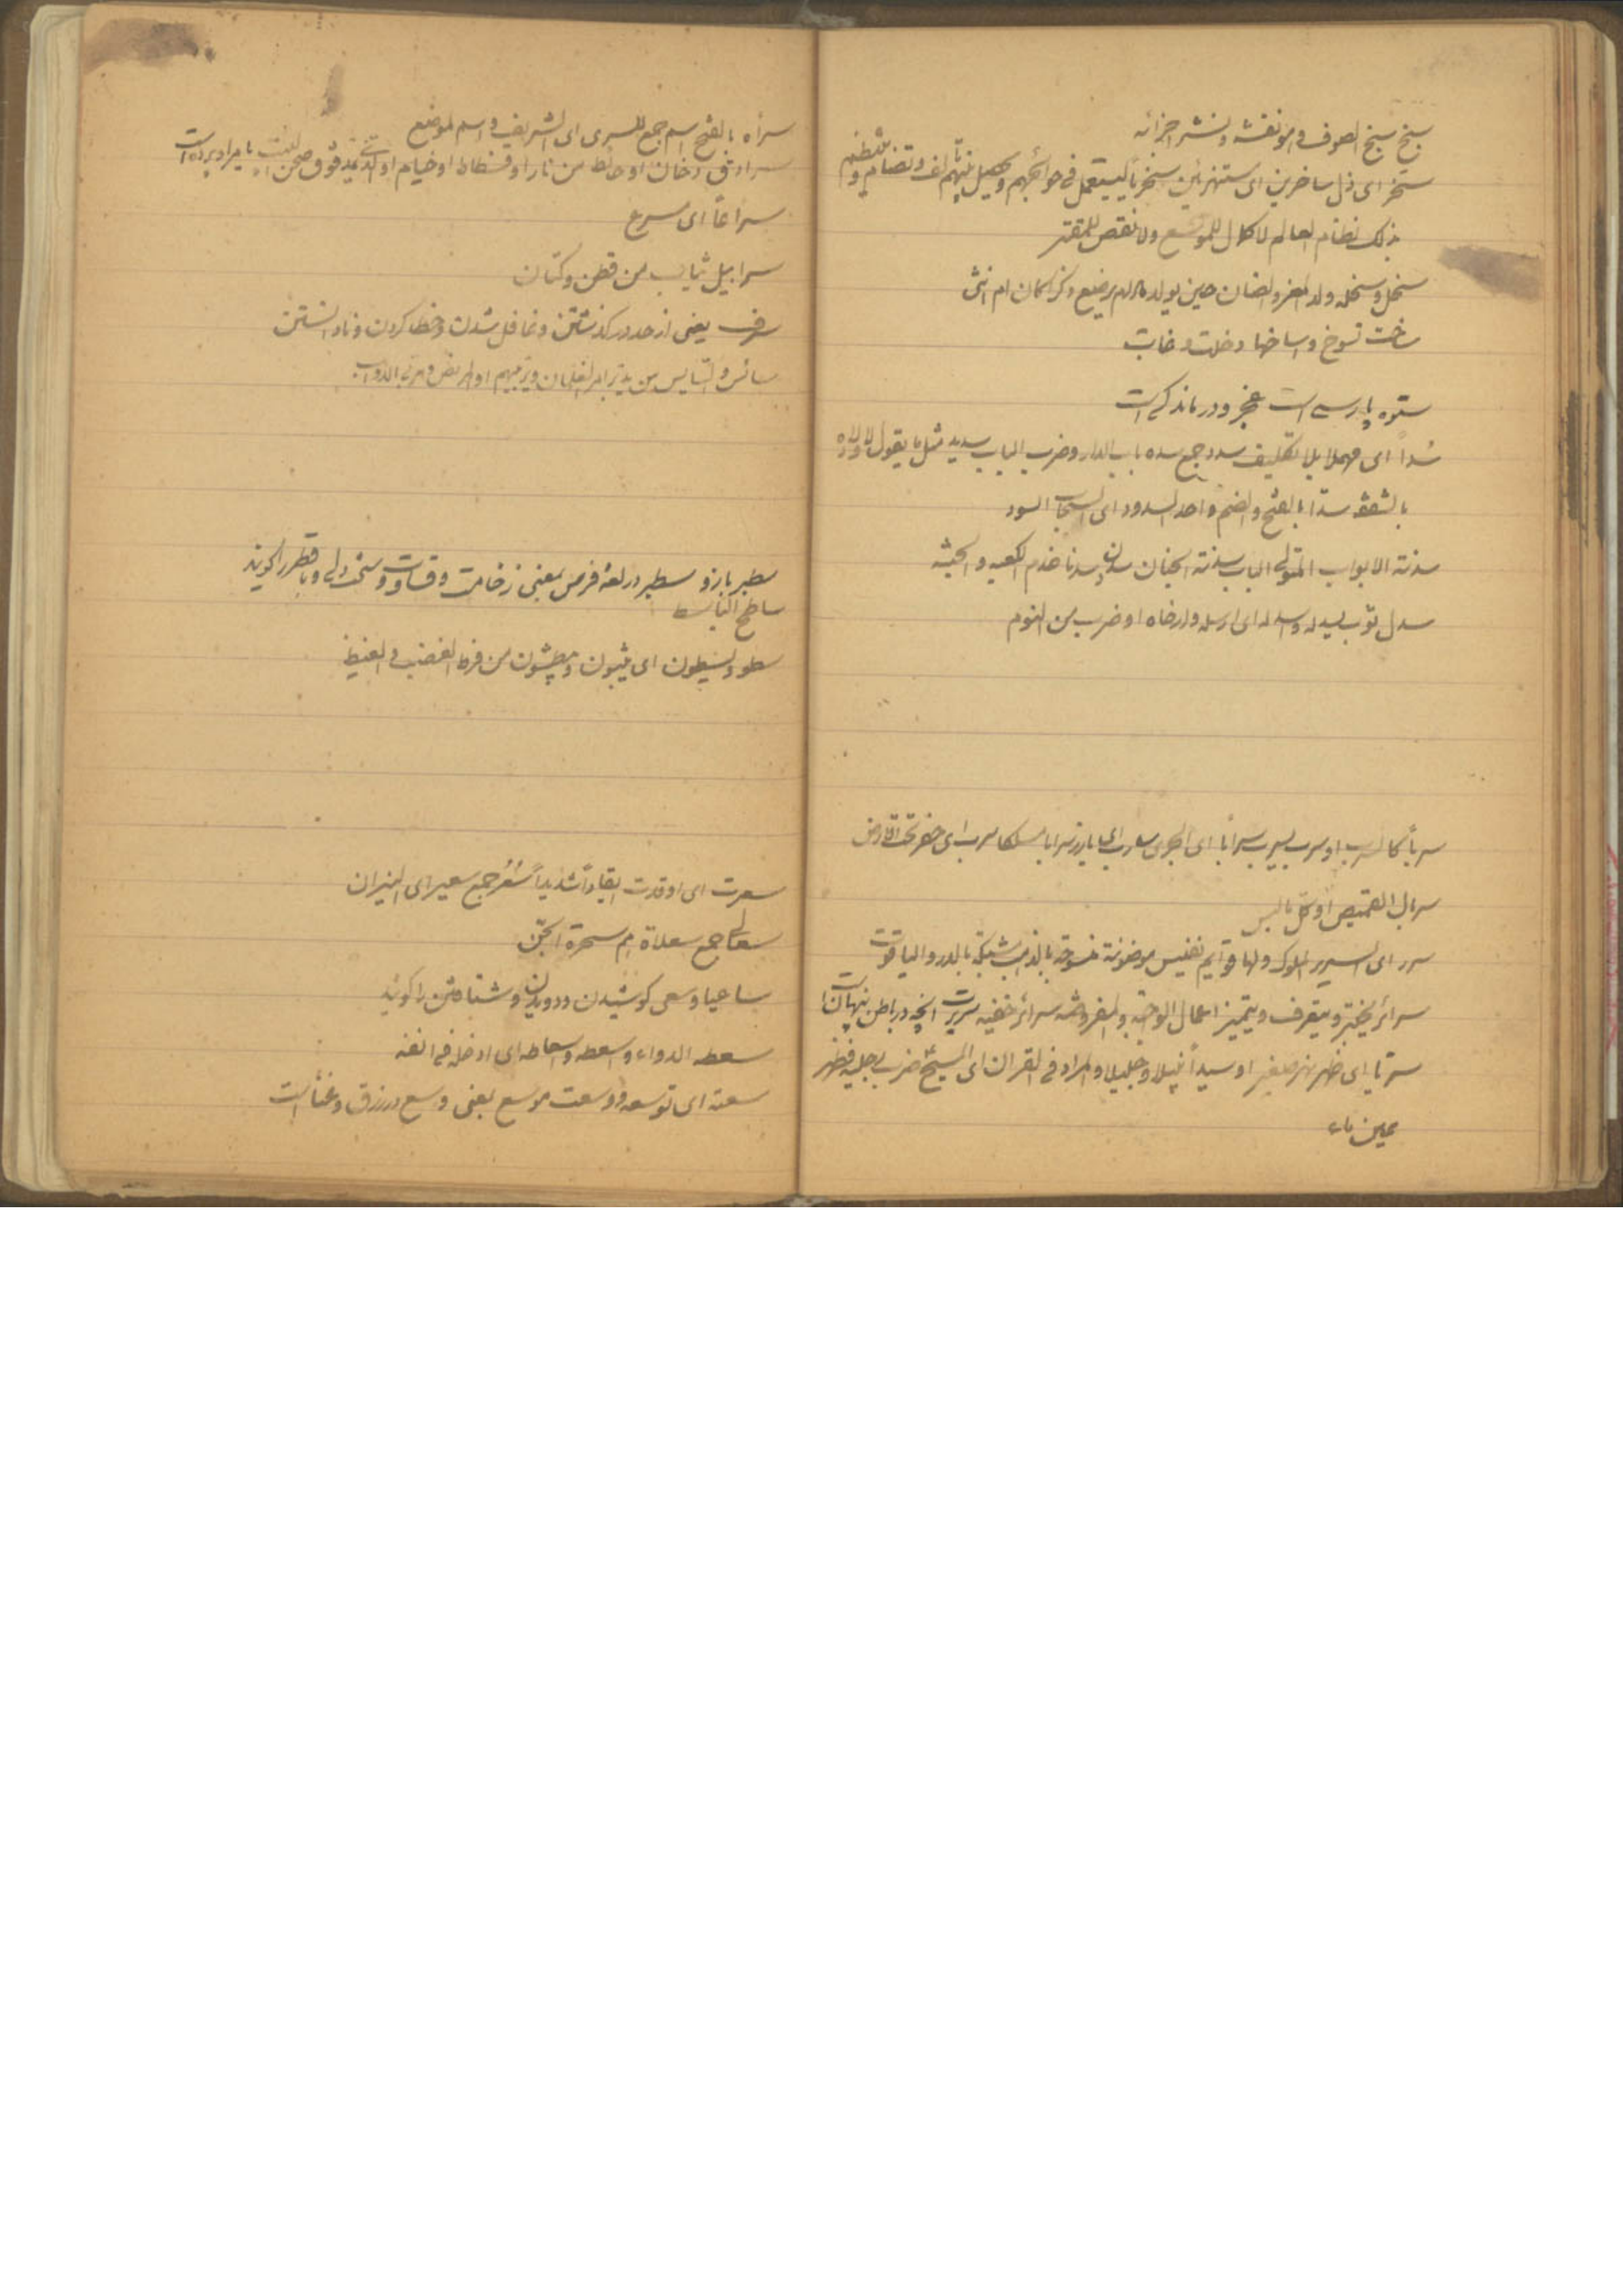 سبخ سبخ الصوف و نفشه و نشر اجزائه
سخر ای ذل ساخرین ای مستهزئین سخریاً لیستعمل فی حوائجهم و یحصل بینهم الف و تضام و ینتظم
بذلک نظام العالم لا کمال للموسع ولا نقص للمقتر
سخل و سخله ولد المعز و الضان حین یولد مالم یرضع ذکر اکان ام انثی
ساخت تسوخ و اساخها دخلت و غابت
ستوه پارسی است عجز و درماندگی است
سداً ای مهملا بلا تکلیف سدد جمع سده باب الدار و ضرب الباب سدید مثل ما یقول
سداً بالفتح و الضم واحد السدود ای السحاب السود
سدنة الابواب المتولی الباب سدنة الجنان سدن سدنا خدم الکعبه
سدل ثوب یسدله و اسدله ای ارسله و ارخاه او ضرب من النوم
سرباً کالسرب او سرب یسرب سراباً ای الجری
سربال القمیص او کل ما یلبس
سرر ای السریر الملوک و لها قوایم نفیس موضونة منسوجة بالذهب مشبکة بالدر و الیاقوت
سرائر یختبر و یتعرف و یتمیز اعمال الواجبه و المفروضه سرائر خفیه سریرت انچه در باطن پنهان است
سریا ای نهر صغیر او سیداً نبیلا و جلیلا و المراد فی القران ای المسیح ضرب برجلیه فظهر
عین ماء
سراه بالفتح اسم جمع للسری ای الشریف و اسم لموضع
سرادق دخان او حائط من نار او فسطاط او خیام او الذی یمد فوق صحن البیت
سراعاً ای سرع
سرابیل ثیاب من قطن و کتان
سرف یعنی از حد در گذشتن و غافل شدن و خطا کردن و نادانستن
سائس و السایس من یدبر امر الغلمان و یربیهم او المربض و مربی الدواب
سطبر بازو سطبر در لغة فرس بمعنی زخامت و قساوت و سخت دلی و با قطر را گویند
ساطح الباسط
سطو و یسطون ای یثبون و یبطشون من فرط الغضب و الغیظ
سعرت ای اوقدت ایقاداً شدیداً سعر جمع سعیر ای النیران
سعالی جمع سعلاة هم سحرة الجن
ساعیا و سعی کوشیدن و دویدن و شتافتن را گویند
سعط الدواء و سعطه و اسعاطه ای ادخله فی انفه
سعة ای توسعه و وسعت موسع یعنی وسع در رزق و غنا است